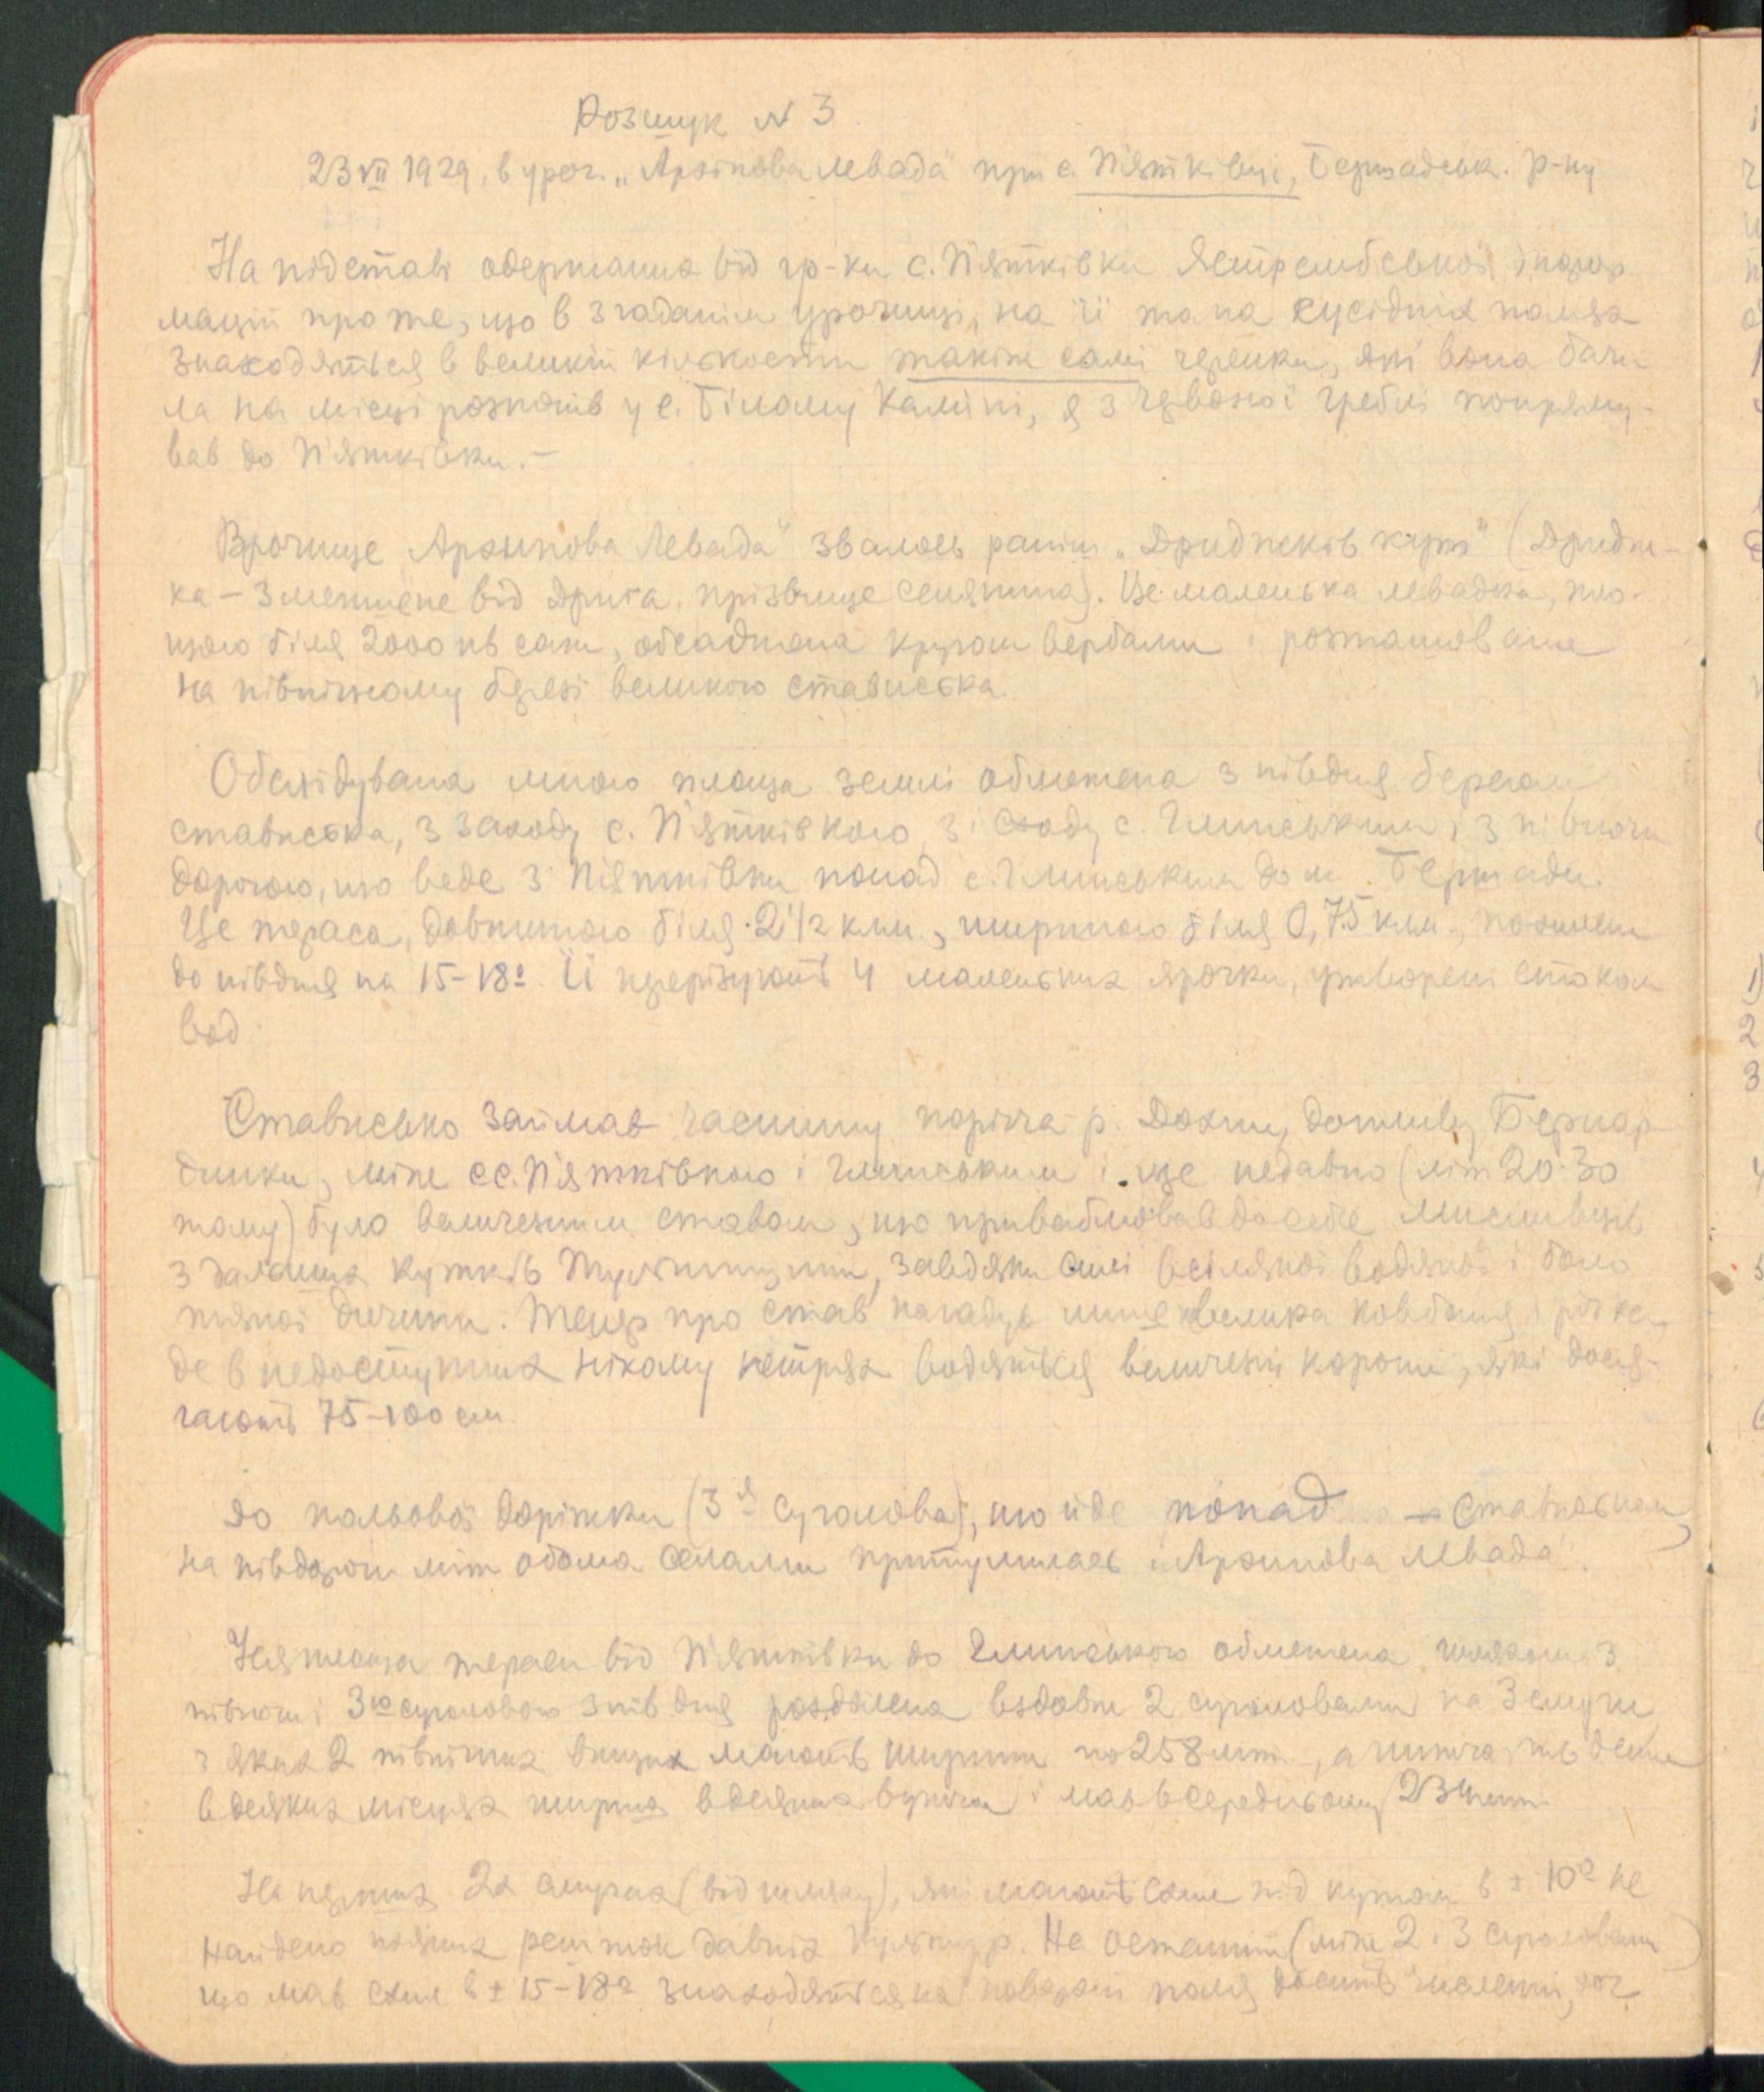 Розшук № 3
23 VII 1929, в уроч. „Архипова левада" при с. П'ятківці, Бершадськ. р-ну
На підставі одержаних від гр-ки с. П'ятківки Ястрембської інфор-
мацій про те, що в згаданім урочищі, на її та на сусідніх полях
знаходяться в великій кількости такіж самі черепки, які вона бачи
ла на місці розкопів у с. Білому Камені, я з Червоної Греблі попряму-
вав до П'ятківки.—
Врочище Архипова Левада" звалось раніш „Дриджків кут" (Дридж-
ка – зменшене від Дрига, прізвище селянина). Це маленька левадка, пло-
щею біля 2000 кв саж, обсаджена кругом вербами і розташована
на північному березі великого стависька.
Обслідувана мною площа землі обмежена з півдня берегом
стависька, з заходу с. П'ятківкою, зі сходу с. Глинським і з півночи
дорогою, що веде з П'ятківки понад с. Глинським до м. Бершади.
Це тераса, довжиною біля 2 1/2 клм., шириною біля 0,75 клм., похилена
до півдня на 15–18°. Її перерізують 4 маленьких ярочки, утворені стоком
вод
Стависько займає частину поріччя р. Дохни, допливу Бернар
динки, між сс. П'ятківкою і Глинським і ще недавно (літ 20-30
тому) було величезним ставом, що приваблював до себе мисливців
з далеких кутків Тульчинщини, завдяки силі всілякої водяної і боло
тяної дичини. Тепер про став нагадує лише велика ковбаня річки,
де в недоступних нікому нетрях водяться величезні коропи, які дося-
гають 75–100 см
До польової доріжки (3я суголова), що йде понад стависьком,
на півдорозі між обома селами притулилась „Архипова левада".
Уся площа тераси від П'ятківки до Глинського обмежена шляхом з
півночи і 3ю суголовою з півдня розділена вздовж 2 суголовами на 3 смуги
з яких 2 північних вищих мають ширини по 258 мт., а нижча
в деяких місцях ширша в деяких вужча і має в середньому 234 мт.
На перших 2х смугах (від шляху), які мають схил під кутом в ± 10° не
найдено ніяких решток давніх культур. На останній (між 2 і 3 суголовами)
що має схил в ± 15–18° знаходяться на поверхні поля досить численні, хоч